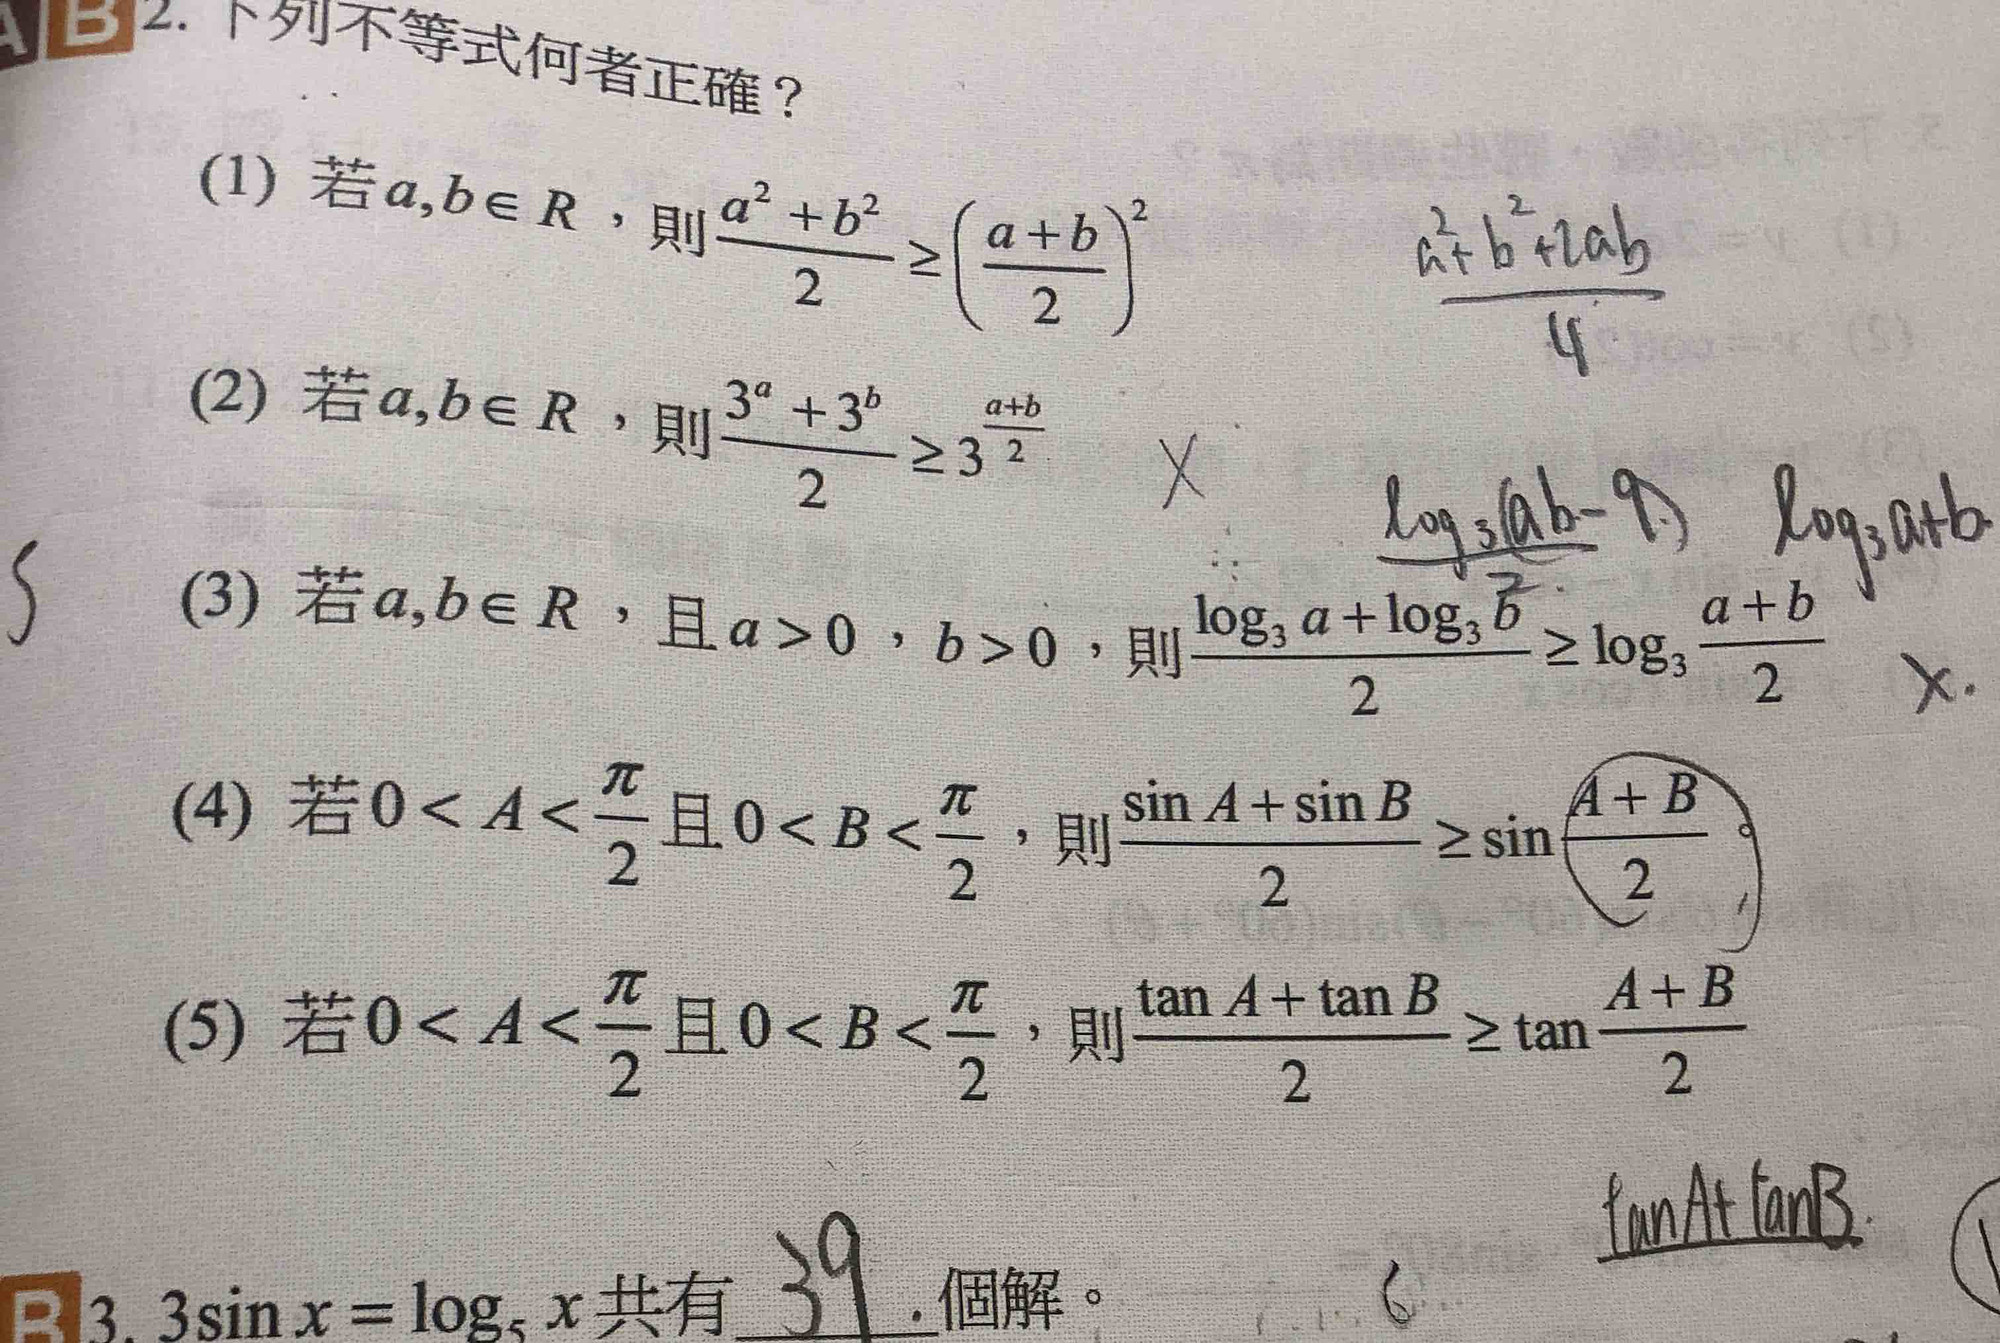 A B 2. 下列不等式何者正確？
a²+b²+2ab / 4
(1) 若a,b∈R，則(a²+b²)/2≥((a+b)/2)²
(2) 若a,b∈R，則(3ᵃ+3ᵇ)/2≥3^((a+b)/2) X
log₃(ab-9) / 2 log₃a+b
(3) 若a,b∈R，且a>0，b>0，則(log₃a+log₃b)/2≥log₃(a+b)/2 X.
(4) 若0<A<π/2且0<B<π/2，則(sin A+sin B)/2≥sin (A+B)/2
(5) 若0<A<π/2且0<B<π/2，則(tan A+tan B)/2≥tan (A+B)/2
tanA+tanB
B 3. 3sin x=log₅ x共有 39 個解。